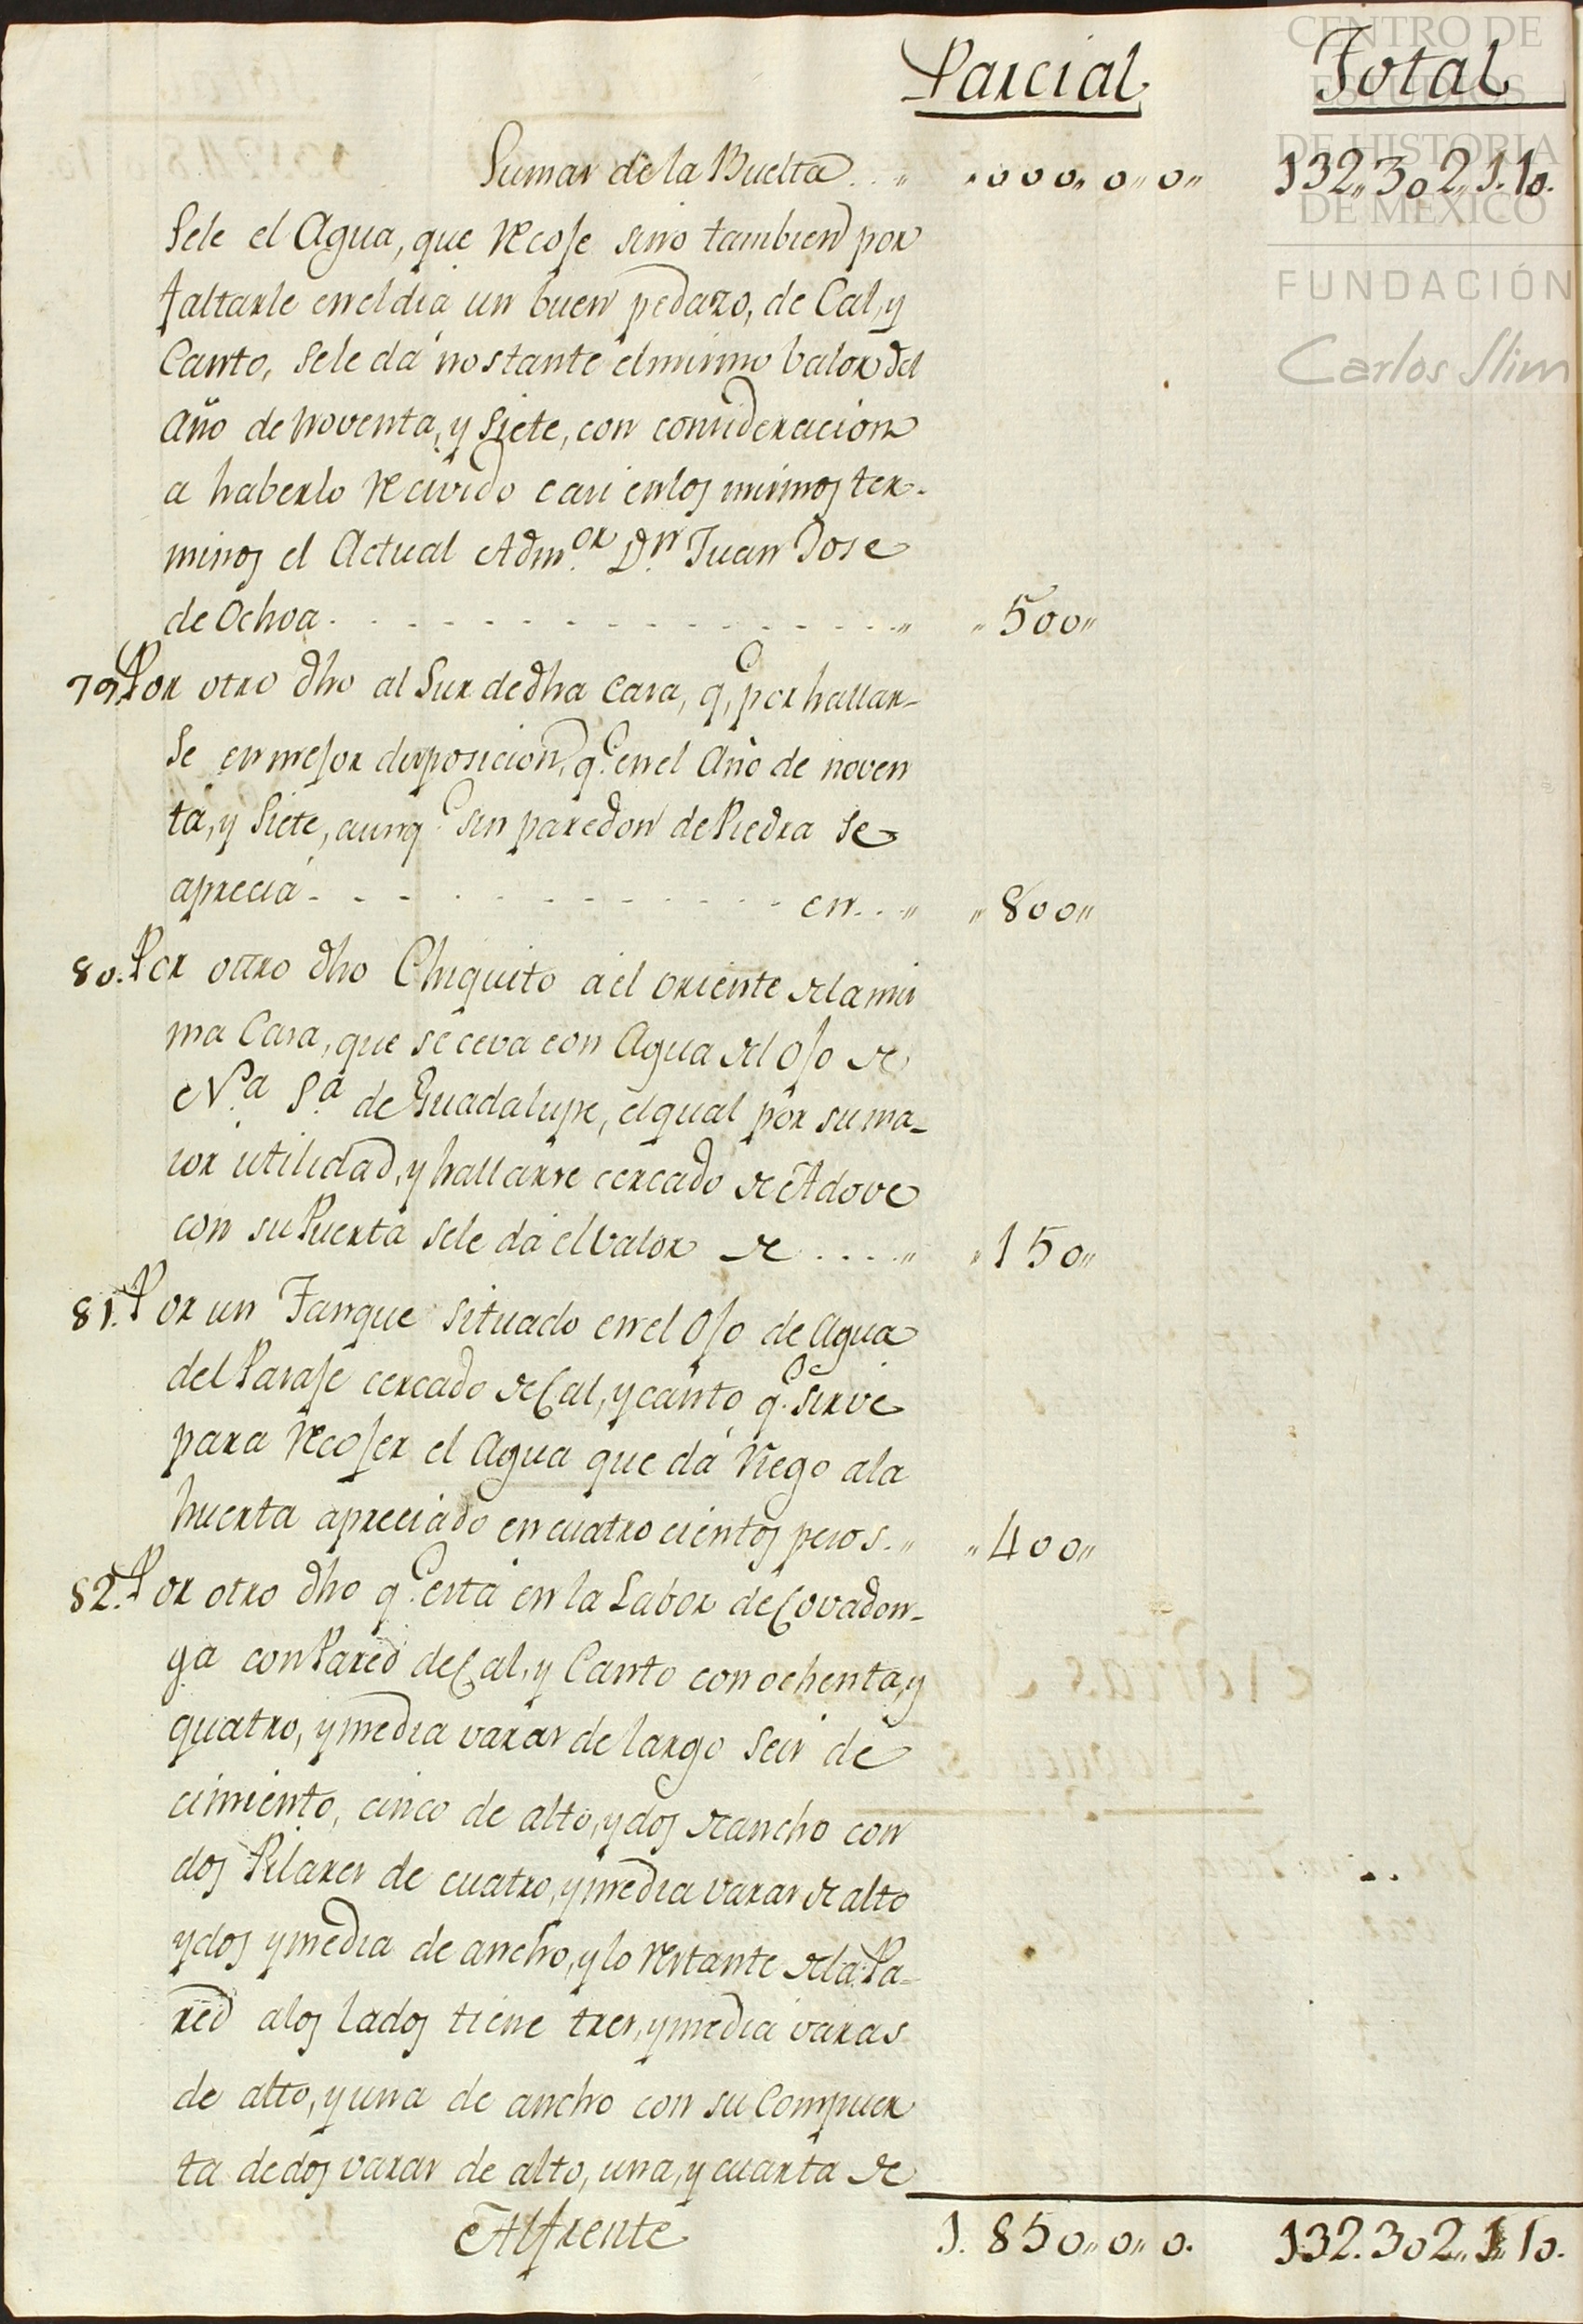 Parcial. Total
Sumas de la Buelta . . „ „ 000„ 0„ 0„ 132„302„1.10.
sele el Agua, que recoje sino tambien por
faltarle en el dia un buen pedazo, de Cal, y
Canto, sele dá nostante el mismo balor del
año de noventa, y siete, con concideracion
a haberlo recivido casi en los mismos ter-
minos el Actual Adm.or D.n Juan Jose
de Ochoa . . . . . . . . . . . . . . . „ „ 500„
79. Por otro dho al Sur de dha casa, q.e por hallar-
se en mejor disposicion, q.e en el Año de noven
ta, y Siete, aunq.e sin paredon de Piedra se
aprecia - - - - - - - - - - - - en. . „ „ 800„
80. Por ottro dho Chiquito á el oriente de la mis
ma Casa, que se ceva con Agua del ojo de
N.a S.a de Guadalupe, el qual por su ma-
ior utilidad, y hallarse cercado de Adove
con su Puerta sele dá el balor de . . . . „ „ 150„
81. Por un Tanque situado en el Ojo de Agua
del Paraje cercado de Cal, y canto q.e sirve
para recojer el Agua que dá riego a la
huerta apreciado en cuatro cientos pesos. „ „ 400„
82. Por otro dho q.e está en la Labor de Covadon-
ga con Pared de Cal, y Canto con ochenta, y
quatro, y media varas de largo seis de
cimiento, cinco de alto, y dos de ancho con
dos Pilares de cuatro, y media varas de alto
y dos y media de ancho, y lo restante de la Pa-
red a los lados tiene tres, y media varas
de alto, y una de ancho con su Compuer
ta de dos varas de alto, una, y cuarta de
Al frente 1. 850„ 0„ 0. 132.302„ 1„ 10.
CENTRO DE
ESTUDIOS
DE HISTORIA
DE MÉXICO
FUNDACIÓN
Carlos Slim